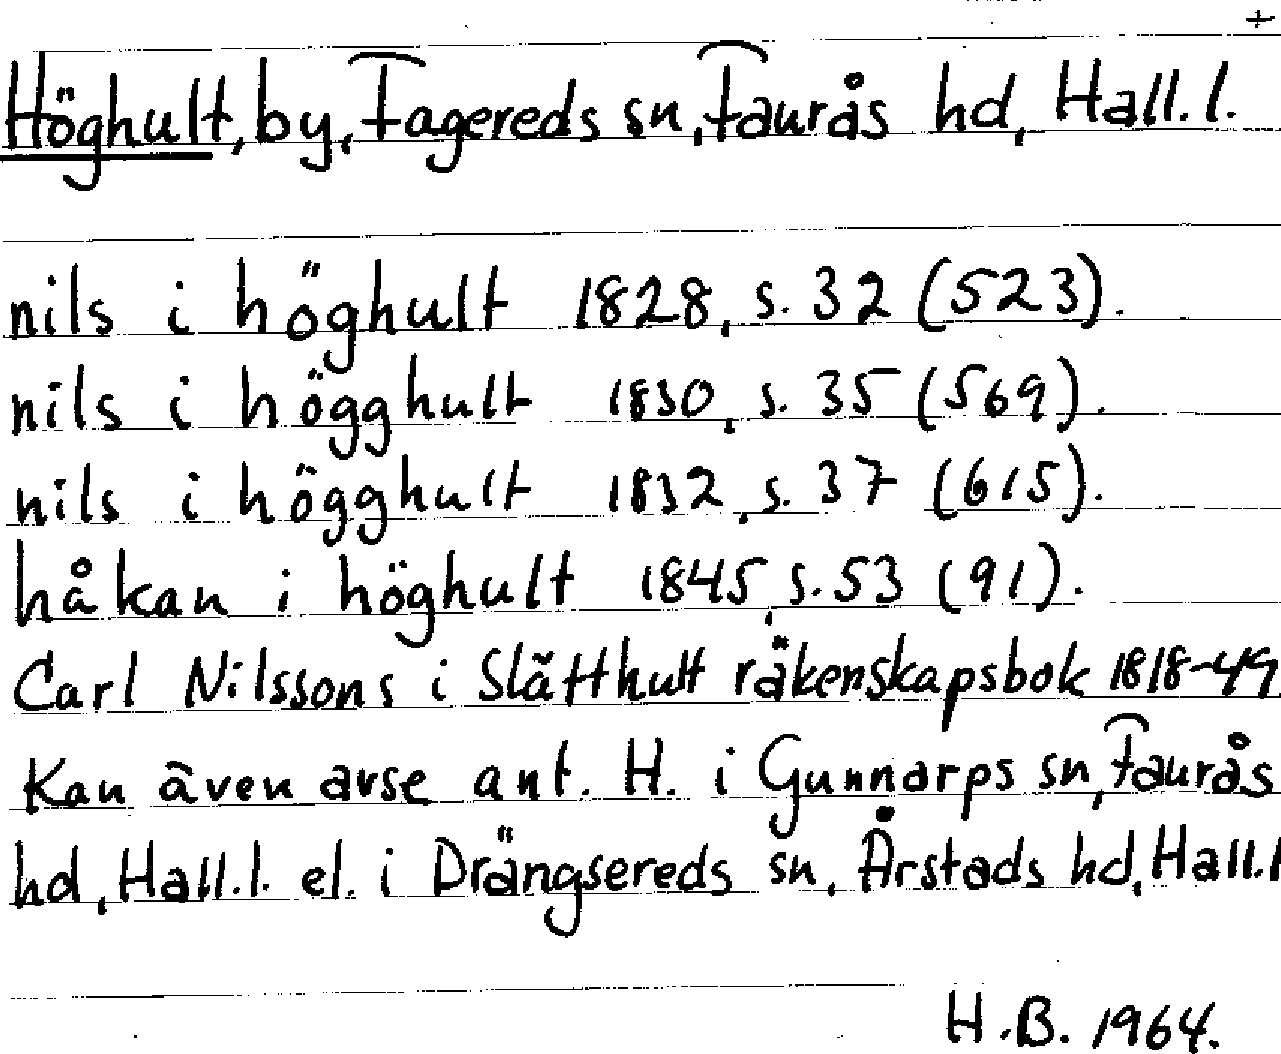 +
Höghult, by, Fagereds sn, Faurås hd, Hall. l.
nils i höghult 1828, s. 32 (523).
nils i högghult 1830, s. 35 (569).
nils i högghult 1832, s. 37 (615).
håkan i höghult 1845, s. 53 (91).
Carl Nilssons i Slätthult räkenskapsbok 1818-49
Kan även avse ant. H. i Gunnarps sn, Faurås
hd, Hall. l. el. i Drängsereds sn, Årstads hd, Hall. l
H.B. 1964.